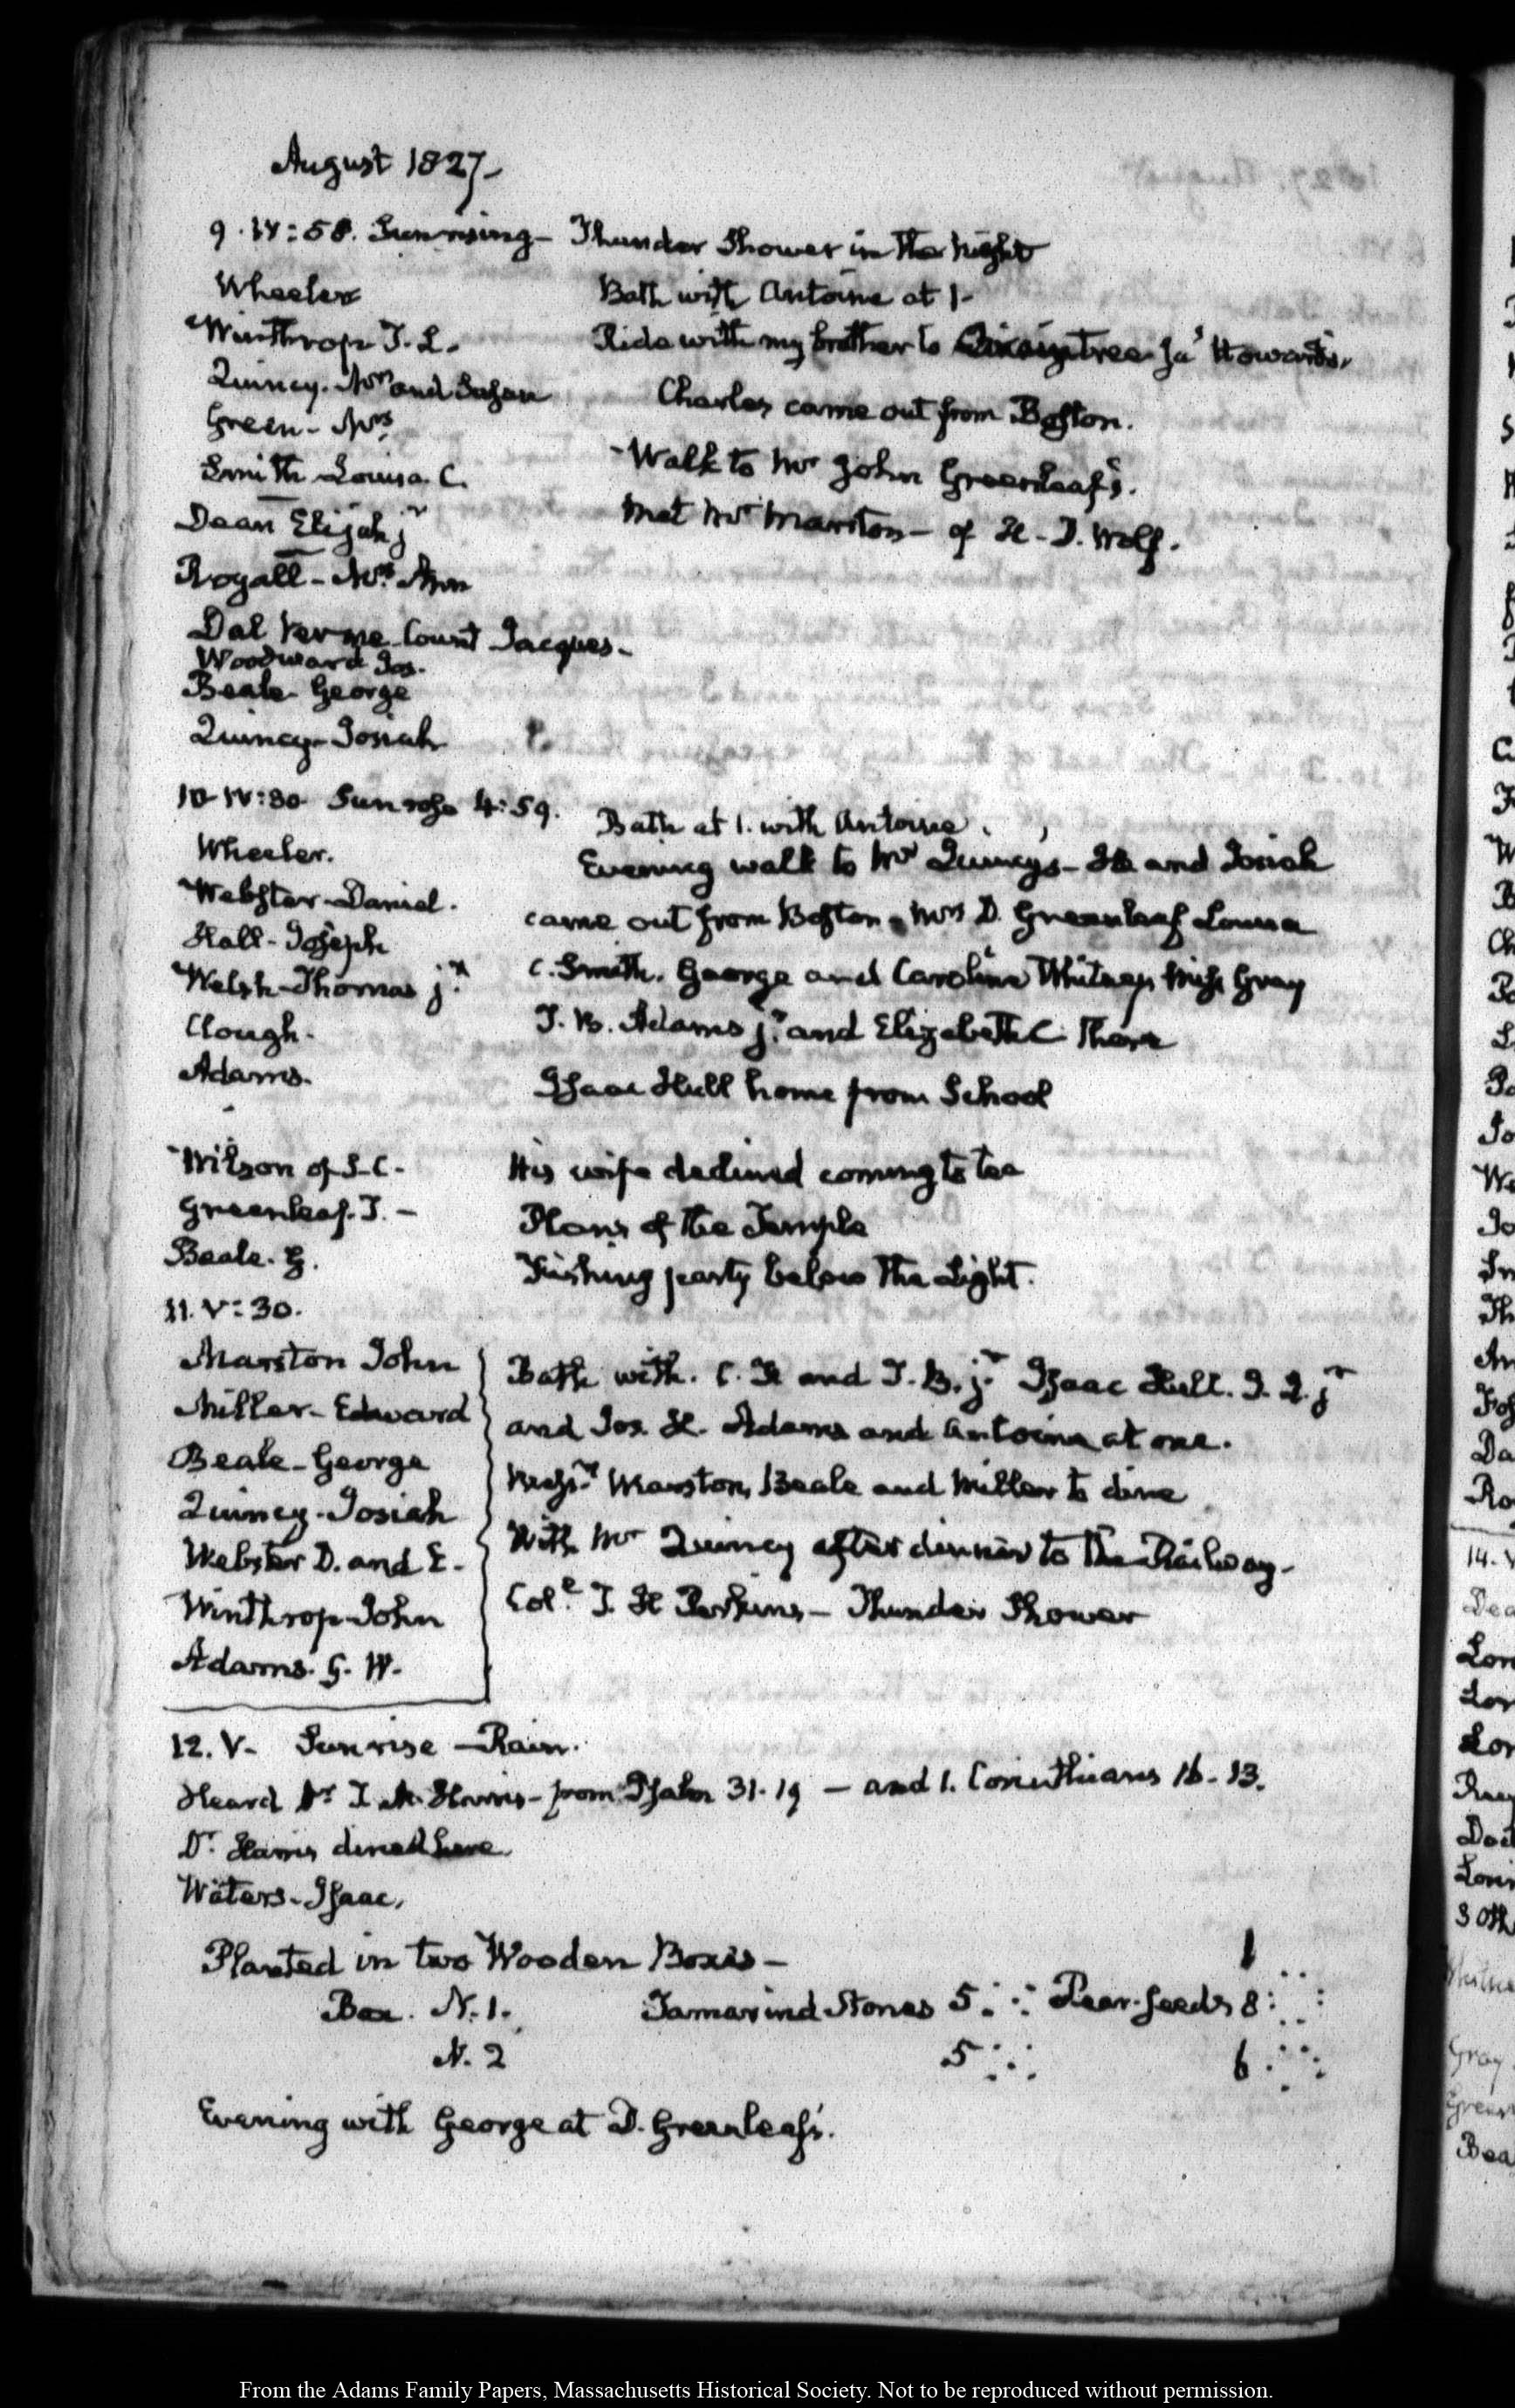 August 1827.
9. IV:58. Sun rising- Thunder Shower in the Night
Wheeler Bath with Antoine at 1-
Winthrop T. L. Ride with my brother to Braintree Howard's.
Quincy. Mrs and Susan Charles came out from Boston.
Green- Mrs
Smith Louisa. C. Walk to Mr John Greenleaf's.
Dean Elijah jr Met Mr Marston- of
Royall- Mrs Ann
Dal Verme Count Jacques-
Woodward Jos.
Beale- George
Quincy- Josiah
10 IV:30 Sun rose 4:59. Bath at 1. with Antoine.
Wheeler. Evening walk to Mr Quincy's- He and Josiah
Webster- Daniel. came out from Boston. Mrs D. Greenleaf Louisa
Hall- Joseph C. Smith. George and Caroline Whitney Miss Gray
Welsh- Thomas jr. T. B. Adams jr. and Elizabeth C. there
Clough.
Adams. Isaac Hull home from School
Wilson of S-C- His wife declined coming to tea
Greenleaf. T. - Plans of the Temple
Beale. G. Fishing party below the Light.
11. V:30.
Marston John Bath with. C. F. and T. B. jr. Isaac Hull. J. Q. jr
Miller- Edward and Jos. H. Adams and Antoine at one.
Beale- George Messrs Marston, Beale and Miller to dine
Quincy- Josiah With Mr Quincy after dinner to the Railway-
Webster D. and E. Coll. T. H Perkins- Thunder Shower
Winthrop- John
Adams. G. W.
12. V- Sun rise - Rain.
Heard Dr T. M. Harris- from Psalm 31. 19 - and 1. Corinthians 16. 13.
Dr. Harris dined here.
Waters- Isaac.
Planted in two Wooden Boxes- 1
Box. N. 1. Tamarind Stones 5 Pear-seeds 8
N. 2 5 6
Evening with George at D. Greenleaf's.
From the Adams Family Papers, Massachusetts Historical Society. Not to be reproduced without permission.